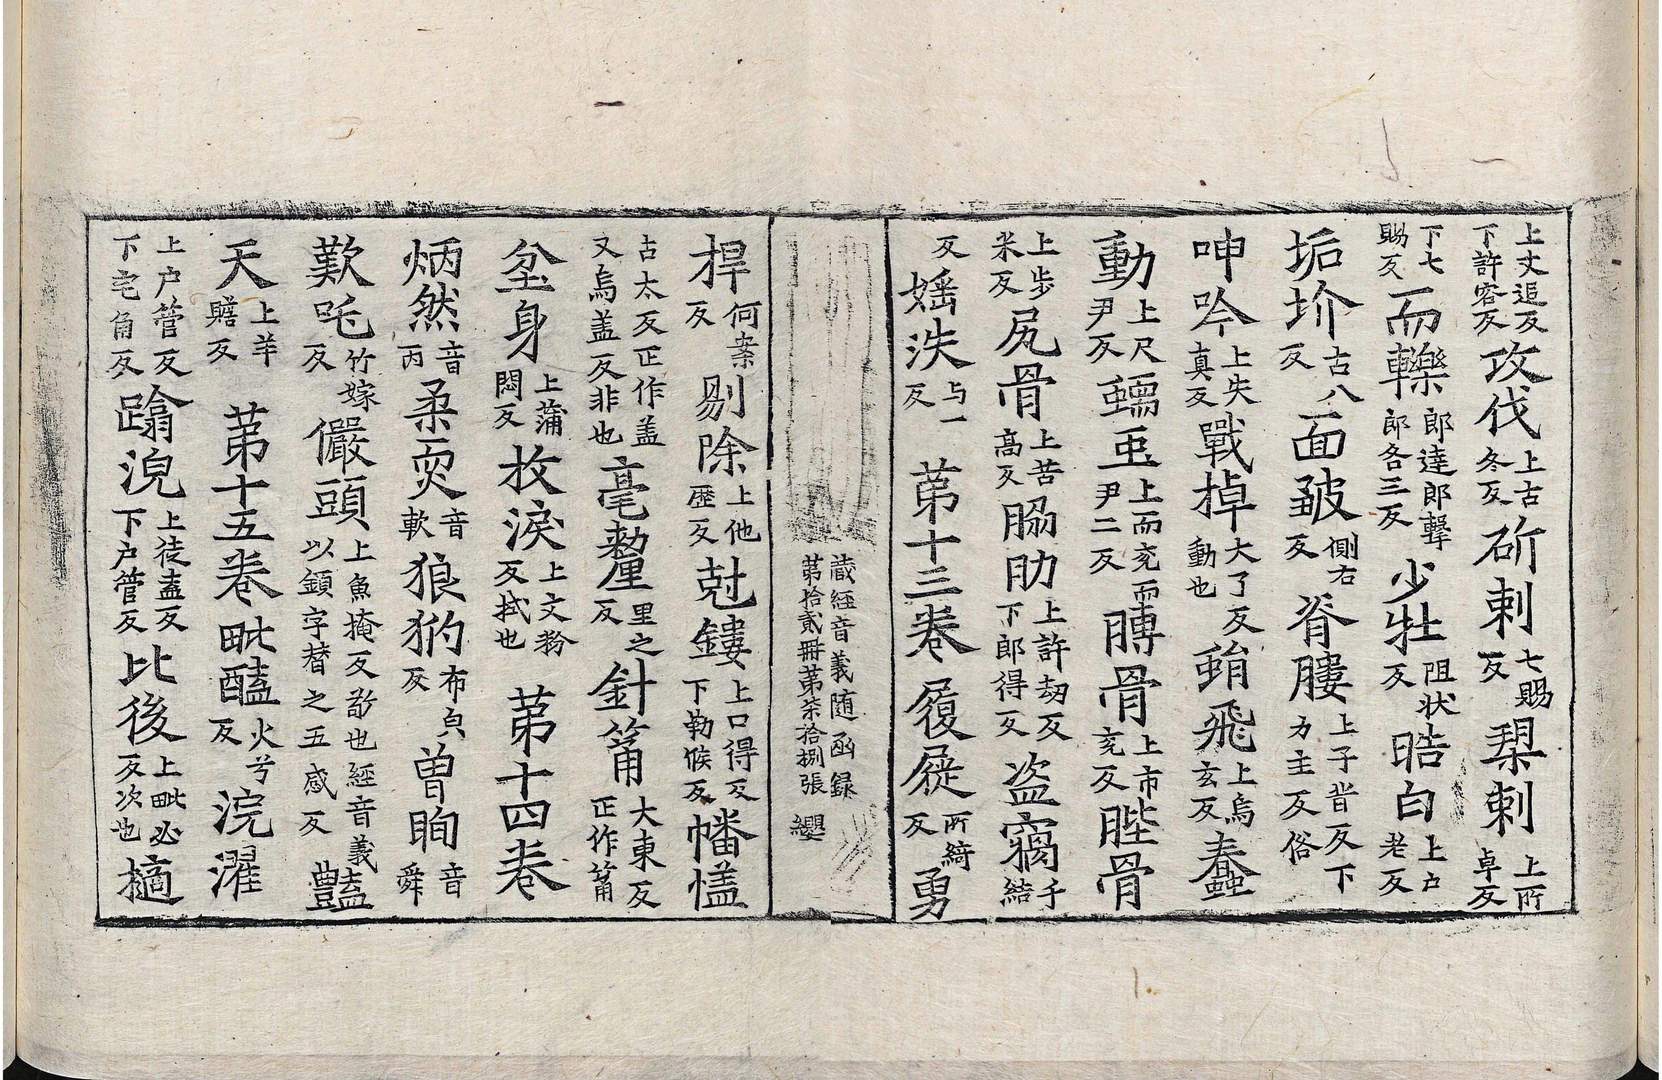 上丈追反下許容反攻伐上古冬反斫剌七賜反槊剌上所卓反
下七賜反而轢郎達郎擊郎各三反少壯阻状反晧白上户老反
垢圿古八反面皺側右反脊膢上子昔反下力主反俗
呻吟上失真反戰掉大了反動也蜎飛上烏玄反蠢
動上尺尹反蝡䖝上而兖而尹二反膞骨上市兖反髀骨
上步米反尻骨上苦高反脇肋上許刧反下郎得反盗竊千結
反婬泆与一反苐十三卷履屣所綺反勇
藏經音義随函録
苐拾貳冊苐柒拾捌張 纓
捍何案反剔除上他歷反尅鏤上口得反下勒候反幡𢅤
古太反正作盖又烏盖反非也毫𣯛里之反針筩大東反正作筩
坌身上蒲悶反抆淚上文粉反拭也苐十四卷
炳然音丙柔耎音軟狼犳布皃反曽眴音舜
歎吒竹嫁反儼頭上魚掩反敬也經音義以顉字替之五感反豔
天上羊贍反苐十五卷毗醯火兮反浣濯
上户管反下宅角反蹹涀上徒盍反下户管反比後上毗必反次也擿